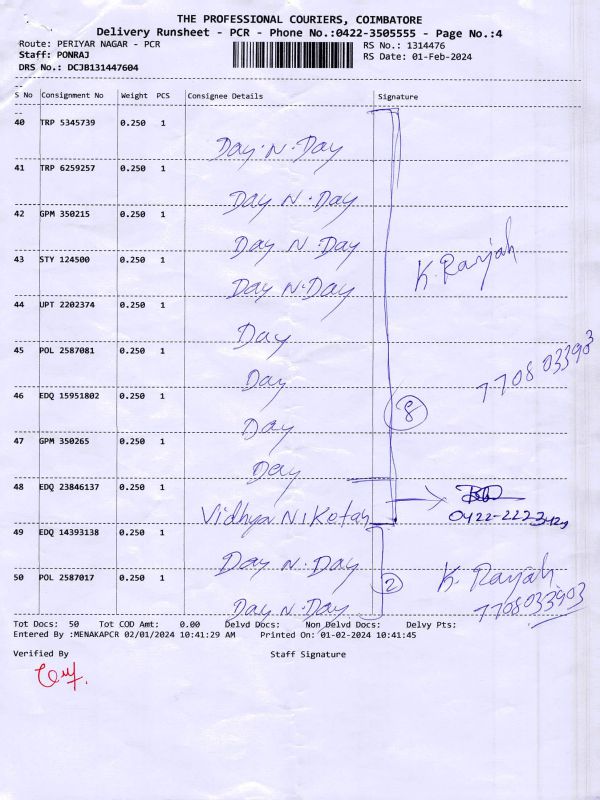 THE PROFESSIONAL COURIERS, COIMBATORE
Delivery Runsheet - PCR - Phone No.:0422-3505555 - Page No.:4
Route: PERIYAR NAGAR - PCR RS No.: 1314476
Staff: PONRAJ RS Date: 01-Feb-2024
DRS No.: DCJB131447604
S No Consignment No Weight PCS Consignee Details Signature
40 TRP 5345739 0.250 1
Day.N.Day
41 TRP 6259257 0.250 1
Day N.Day
42 GPM 350215 0.250 1
Day N.Day
43 STY 124500 0.250 1 K.Ranjah
Day N.Day
44 UPT 2202374 0.250 1
Day
45 POL 2587081 0.250 1 7708033903
Day
46 EDQ 15951802 0.250 1
Day 8
47 GPM 350265 0.250 1
Day
48 EDQ 23846137 0.250 1
Vidhya Niketan
49 EDQ 14393138 0.250 1
Day N.Day
50 POL 2587017 0.250 1 2 K. Ranjah
Day N.Day 7708033903
Tot Docs: 50 Tot COD Amt: 0.00 Delvd Docs: Non Delvd Docs: Delvy Pts:
Entered By :MENAKAPCR 02/01/2024 10:41:29 AM Printed On: 01-02-2024 10:41:45
Verified By Staff Signature